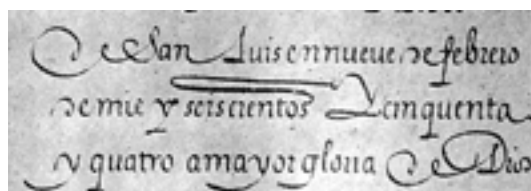 De San Luis en nueve de febrero
de mil y seiscientos Y cinquenta
y quatro a mayor gloria De Dios